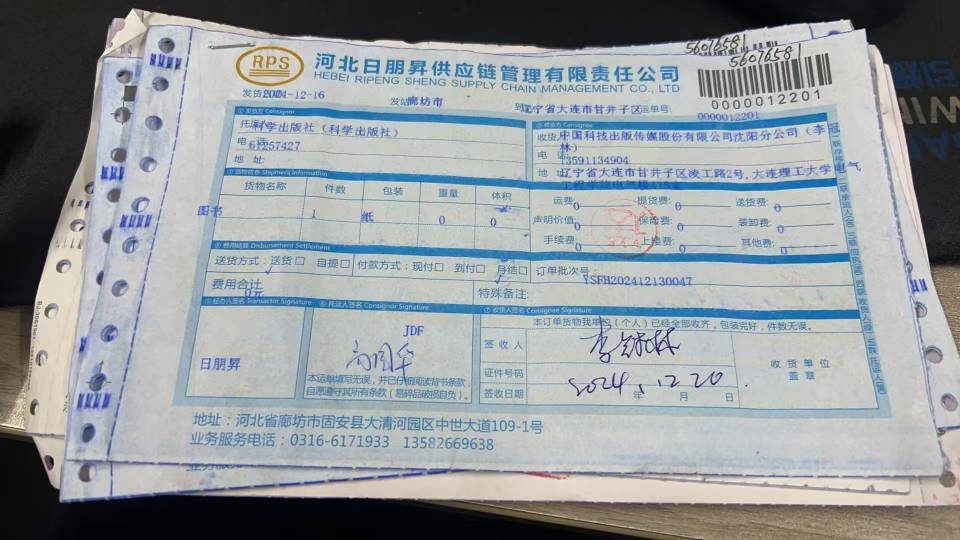 5607658
5607658 1
RPS
河北日朋昇供应链管理有限责任公司
HEBEI RIPENG SHENG SUPPLY CHAIN MANAGEMENT CO., LTD
0000012201
发货 2024-12-16 发站 廊坊市 到 辽宁省大连市甘井子区 运单号: 0000012201
①发货方 Consignor
科学出版社(科学出版社)
电 话 61257427
地 址:
②收货方 Consignee
收货 中国科技出版传媒股份有限公司沈阳分公司(李冠
林)
电 话 13591134904
地 址 辽宁省大连市甘井子区凌工路2号,大连理工大学电气
③货物信息 Shipment Information
货物名称 件数 包装 重量 体积
图书 1 纸 0 0
运费: 0 提货费: 0 送货费: 0
声明价值: 0 保险费: 0 装卸费: 0
手续费: 0 上楼费: 0 其他费: 0
④费用结算 Disbursement Settlement
送货方式:送货□ 自提□ 付款方式:现付□ 到付□ 月结□ 订单批次号: YSFH202412130047
费用合计
0元
特殊备注:
⑤经办人签名 Transactor Signature
日朋昇
⑥托运人签名 Consignor Signature
JDF
本运单填写无误,并已仔细阅读背书条款,
自愿遵守其所有条款(易碎品破损自负)。
⑦收货人签名 Consignee Signature
本订单货物我单位(个人)已经全部收齐,包装完好,件数无误。
签 收 人
证件号码
签收日期 2024.12 20. 年 月 日
收 货 单 位
盖 章
地址:河北省廊坊市固安县大清河园区中世大道109-1号
业务服务电话:0316-6171933 13582669638